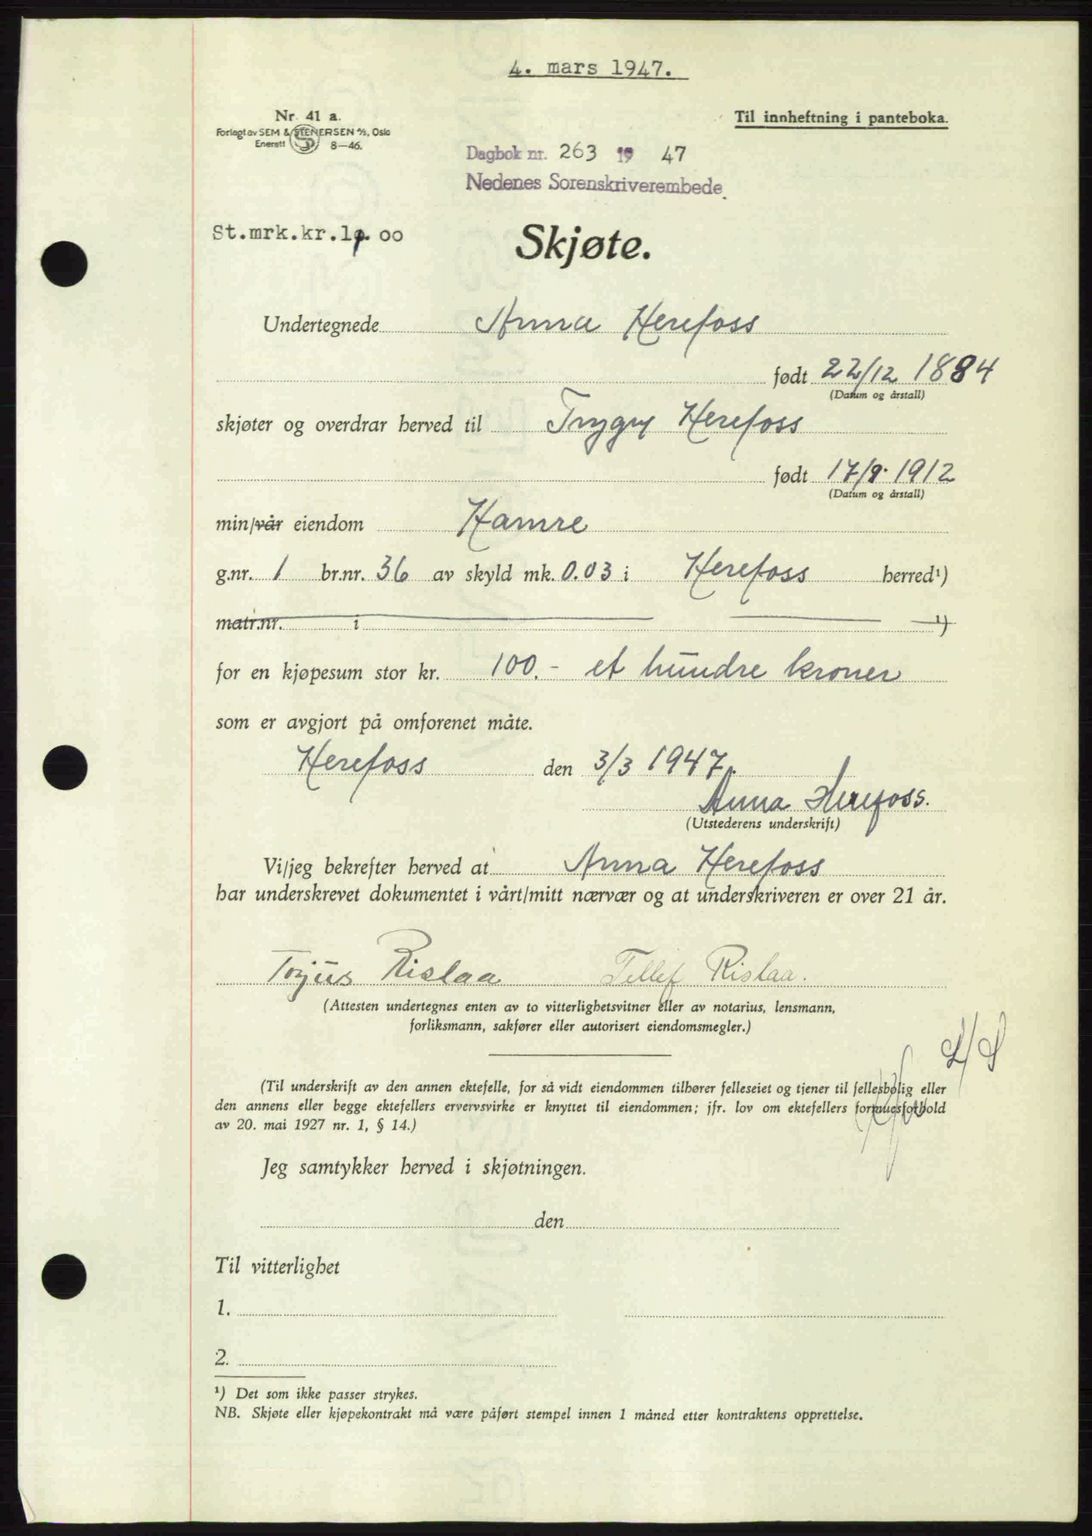 4. mars 1947.
Nr. 41 a.
Forlagt av SEM & STENERSEN A/S, Oslo
Enerett 8—46.
Til innheftning i panteboka.
Dagbok nr. 263 19 47
Nedenes Sorenskriverembede.
St.mrk.kr.1. 00
Skjøte.
Undertegnede Anna Herefoss
født 22/12 1884
(Datum og årstall)
skjøter og overdrar herved til Trygve Herefoss
født 17/9. 1912
(Datum og årstall)
min/vår eiendom Hamre
g.nr. 1 br.nr. 36 av skyld mk. 0.03 i Herefoss herred¹)
matr.nr. i ¹)
for en kjøpesum stor kr. 100.- et hundre kroner
som er avgjort på omforenet måte.
Herefoss den 3/3 1947.
Anna Herefoss.
(Utstederens underskrift)
Vi/jeg bekrefter herved at Anna Herefoss
har underskrevet dokumentet i vårt/mitt nærvær og at underskriveren er over 21 år.
Torjus Rislaa Tellef Rislaa.
(Attesten undertegnes enten av to vitterlighetsvitner eller av notarius, lensmann,
forliksmann, sakfører eller autorisert eiendomsmegler.)
(Til underskrift av den annen ektefelle, for så vidt eiendommen tilhører felleseiet og tjener til fellesbolig eller
den annens eller begge ektefellers ervervsvirke er knyttet til eiendommen; jfr. lov om ektefellers formuesforhold
av 20. mai 1927 nr. 1, § 14.)
Jeg samtykker herved i skjøtningen.
den
Til vitterlighet
1.
2.
¹) Det som ikke passer strykes.
NB. Skjøte eller kjøpekontrakt må være påført stempel innen 1 måned etter kontraktens opprettelse.